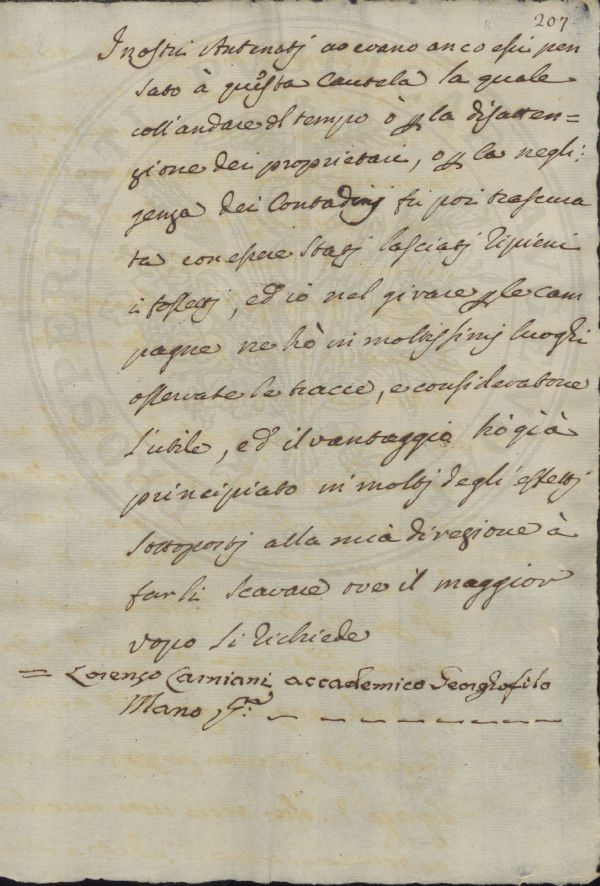 207
I nostri Antenatj avevano anco essi pen
sato à questa Cautela la quale
coll'andare dl tempo ò p la disatten=
zione dei proprietari, o p la negli:
genza dei Contadinj fù poi trascura
ta con essere statj lasciatj ripieni
i fossettj, ed io nel girare p le cam
pagne ne hò in moltissimj luoghi
osservate le tracce, e consideratone
l'utile, ed il vantaggio hò già
principiato in moltj degli effettj
sottopostj alla mia direzione à
farli scavare ove il maggior
uopo li richiede
= Lorenzo Camiani accademico Georgofilo
Mano